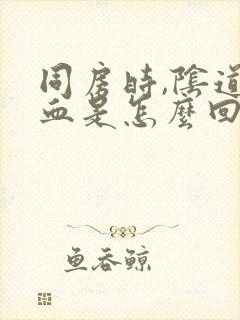 同房時,陰道
血是怎麼回
鱼吞鲸